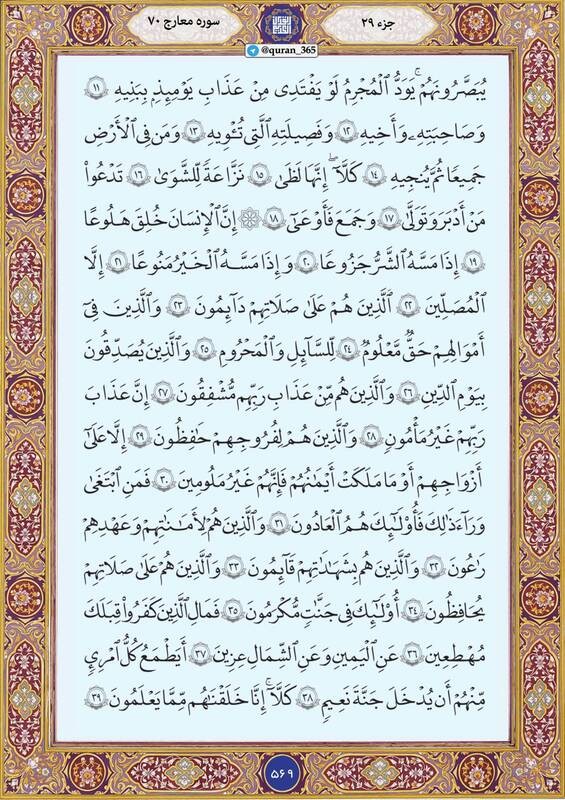 جزء ۲۹
سوره معارج ۷۰
@quran_365
يُبَصَّرُونَهُمْ ۚ يَوَدُّ ٱلْمُجْرِمُ لَوْ يَفْتَدِى مِنْ عَذَابِ يَوْمِئِذٍۭ بِبَنِيهِ ۝۱۱
وَصَاحِبَتِهِۦ وَأَخِيهِ ۝۱۲ وَفَصِيلَتِهِ ٱلَّتِى تُـْٔوِيهِ ۝۱۳ وَمَن فِى ٱلْأَرْضِ
جَمِيعًا ثُمَّ يُنجِيهِ ۝۱۴ كَلَّآ ۖ إِنَّهَا لَظَىٰ ۝۱۵ نَزَّاعَةً لِّلشَّوَىٰ ۝۱۶ تَدْعُوا۟
مَنْ أَدْبَرَ وَتَوَلَّىٰ ۝۱۷ وَجَمَعَ فَأَوْعَىٰٓ ۝۱۸ ۞ إِنَّ ٱلْإِنسَـٰنَ خُلِقَ هَلُوعًا
۝۱۹ إِذَا مَسَّهُ ٱلشَّرُّ جَزُوعًا ۝۲۰ وَإِذَا مَسَّهُ ٱلْخَيْرُ مَنُوعًا ۝۲۱ إِلَّا
ٱلْمُصَلِّينَ ۝۲۲ ٱلَّذِينَ هُمْ عَلَىٰ صَلَاتِهِمْ دَآئِمُونَ ۝۲۳ وَٱلَّذِينَ فِىٓ
أَمْوَٰلِهِمْ حَقٌّ مَّعْلُومٌ ۝۲۴ لِّلسَّآئِلِ وَٱلْمَحْرُومِ ۝۲۵ وَٱلَّذِينَ يُصَدِّقُونَ
بِيَوْمِ ٱلدِّينِ ۝۲۶ وَٱلَّذِينَ هُم مِّنْ عَذَابِ رَبِّهِم مُّشْفِقُونَ ۝۲۷ إِنَّ عَذَابَ
رَبِّهِمْ غَيْرُ مَأْمُونٍ ۝۲۸ وَٱلَّذِينَ هُمْ لِفُرُوجِهِمْ حَـٰفِظُونَ ۝۲۹ إِلَّا عَلَىٰٓ
أَزْوَٰجِهِمْ أَوْ مَا مَلَكَتْ أَيْمَـٰنُهُمْ فَإِنَّهُمْ غَيْرُ مَلُومِينَ ۝۳۰ فَمَنِ ٱبْتَغَىٰ
وَرَآءَ ذَٰلِكَ فَأُو۟لَـٰٓئِكَ هُمُ ٱلْعَادُونَ ۝۳۱ وَٱلَّذِينَ هُمْ لِأَمَـٰنَـٰتِهِمْ وَعَهْدِهِمْ
رَٰعُونَ ۝۳۲ وَٱلَّذِينَ هُم بِشَهَـٰدَٰتِهِمْ قَآئِمُونَ ۝۳۳ وَٱلَّذِينَ هُمْ عَلَىٰ صَلَاتِهِمْ
يُحَافِظُونَ ۝۳۴ أُو۟لَـٰٓئِكَ فِى جَنَّـٰتٍ مُّكْرَمُونَ ۝۳۵ فَمَالِ ٱلَّذِينَ كَفَرُوا۟ قِبَلَكَ
مُهْطِعِينَ ۝۳۶ عَنِ ٱلْيَمِينِ وَعَنِ ٱلشِّمَالِ عِزِينَ ۝۳۷ أَيَطْمَعُ كُلُّ ٱمْرِئٍ
مِّنْهُمْ أَن يُدْخَلَ جَنَّةَ نَعِيمٍ ۝۳۸ كَلَّآ ۖ إِنَّا خَلَقْنَـٰهُم مِّمَّا يَعْلَمُونَ ۝۳۹
۵۶۹